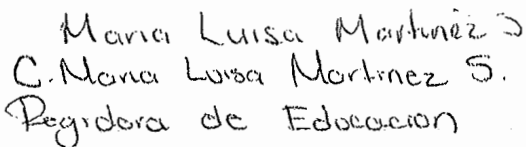 Maria Luisa Martinez S
C. Maria Luisa Martinez S.
Regidora de Educacion